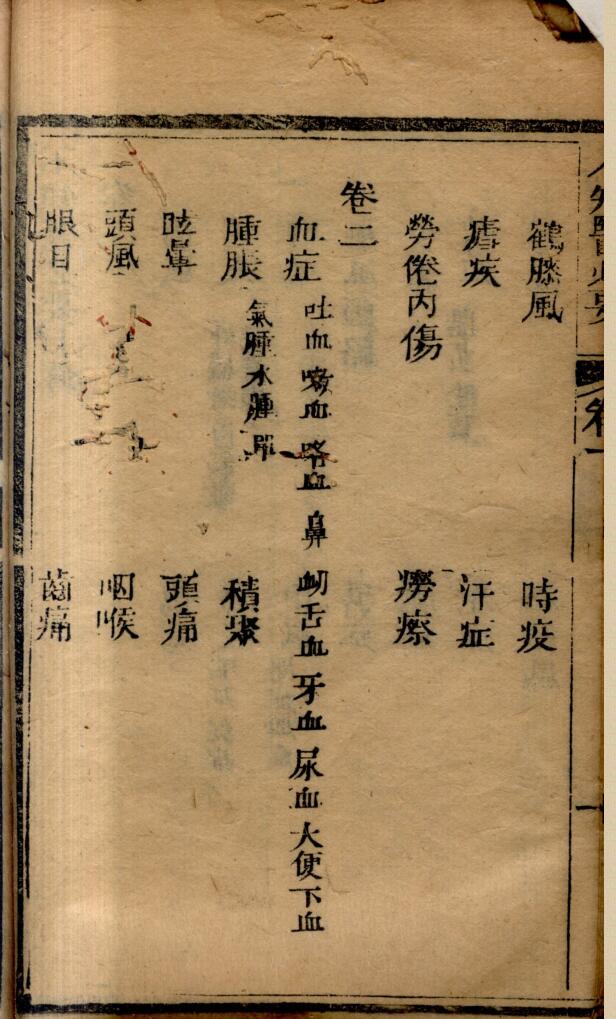 鶴膝風　時疫
瘧疾　汗症
勞倦內傷　癆瘵
卷二
血症　吐血嗽血咯血鼻衂舌血牙血尿血大便下血
腫脹　氣腫水腫　積聚
眩暈　頭痛
頭風　咽喉
眼目　齒痛